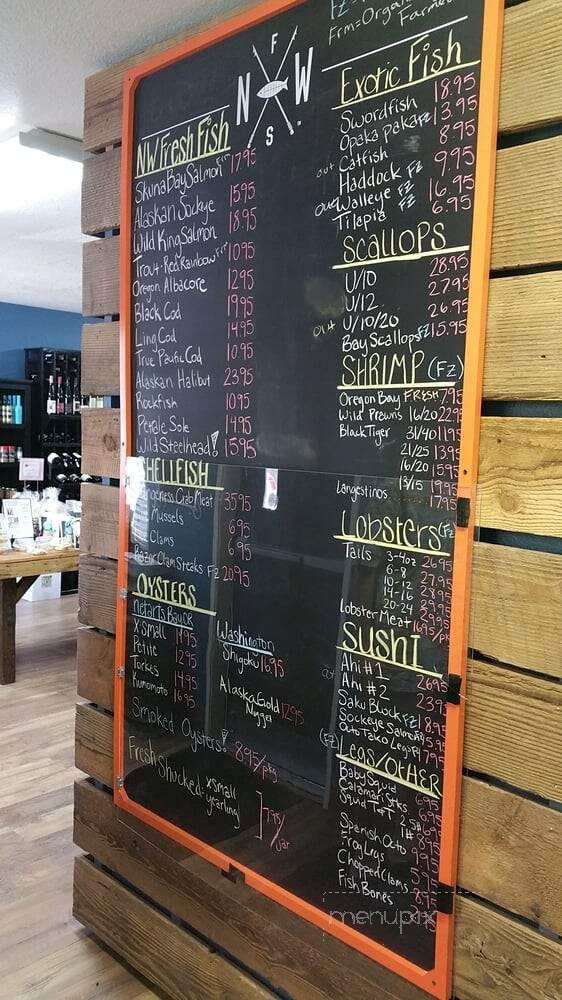 FZ=
Frm=Organ
Farmed
N F W S
NW Fresh Fish
Skuna Bay Salmon Frm 17.95
Alaskan Sockye 15.95
Wild King Salmon 18.95
Trout-Red Rainbow Frm 10.95
Oregon Albacore 12.95
Black Cod 19.95
Ling Cod 14.95
True Pacific Cod 10.95
Alaskan Halibut 23.95
Rockfish 10.95
Petrale Sole 14.95
Wild Steelhead! 15.95
SHELLFISH
Crab Meat 35.95
Mussels 6.95
Clams 6.95
Razor Clam Steaks FZ 20.95
OYSTERS
Netarts Bay OR
X Small 11.95
Petite 12.95
Torkes 14.95
Kumomoto 16.95
Washington
Shigoku 16.95
Alaska Gold
Nugget 12.95
Smoked Oysters! 8.95/pkg
Fresh Shucked: xsmall
yearling 7.95/jar
Exotic Fish
Swordfish 18.95
Opaka paka FZ 13.95
out Catfish 8.95
Haddock FZ 9.95
out Walleye FZ 16.95
Tilapia FZ 6.95
SCALLOPS
U/10 28.95
U/12 27.95
out U/10/20 26.95
Bay Scallops FZ 15.95
SHRIMP (FZ)
Oregon Bay FRESH 7.95
Wild Prawns 16/20 22.95
Black Tiger 31/40 11.95
21/25 13.95
16/20 15.95
13/15 19.95
Langestinos 17.95
Lobsters (FZ
Tails 3-4oz 26.95
6-8 27.95
10-12
14-16 28.95
20-24
Lobster Meat
SUSHI
out Ahi #1 26.95
Ahi #2 23.95
Saku Block FZ 18.95
Sockeye Salmon FZ 15.95
Octo Tako Legs FZ 17.95
(FZ) LEGS/OTHER
Baby Squid 6.95
Calamari Stks
Squid T&T 2.5#
1#
Spanish Octo
Frog Legs
Chopped Clams 5.95
Fish Bones
menupix